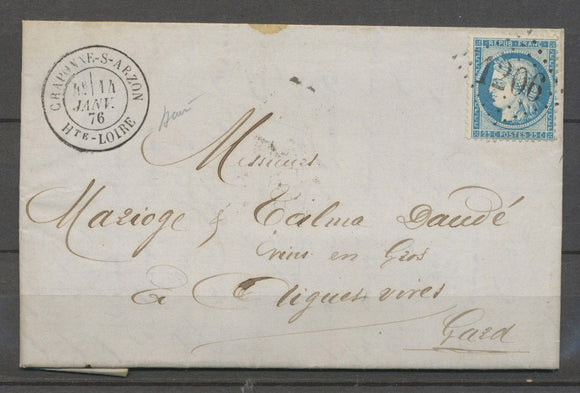 CRAPONNE-S-ARZON
14
JANV.
76
HTE-LOIRE
REPUB·FRANC·
1206
25 C·POSTES·25 C
Messieurs
Marioge & Talma Daudé
Vins en Gros
à Aigues vives
Gard